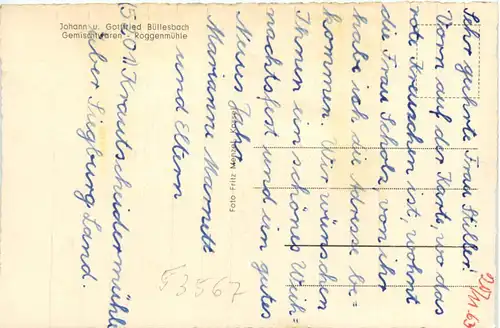 Johann u. Gottfried Büllesbach
Gemischtwaren - Roggenmühle
Sehr geehrte Frau Stiller!
Vorn auf der Karte, wo das
rote Kreuzchen ist, wohnt
die Frau Scholz, von ihr
habe ich die Adresse be-
kommen. Wir wünschen
Ihnen ein schönes Weih=
nachtsfest und ein gutes
Neues Jahr
Marianne
und Eltern
5201 Krautscheidermühle
über Siegburg Land.
Foto Fritz
53567